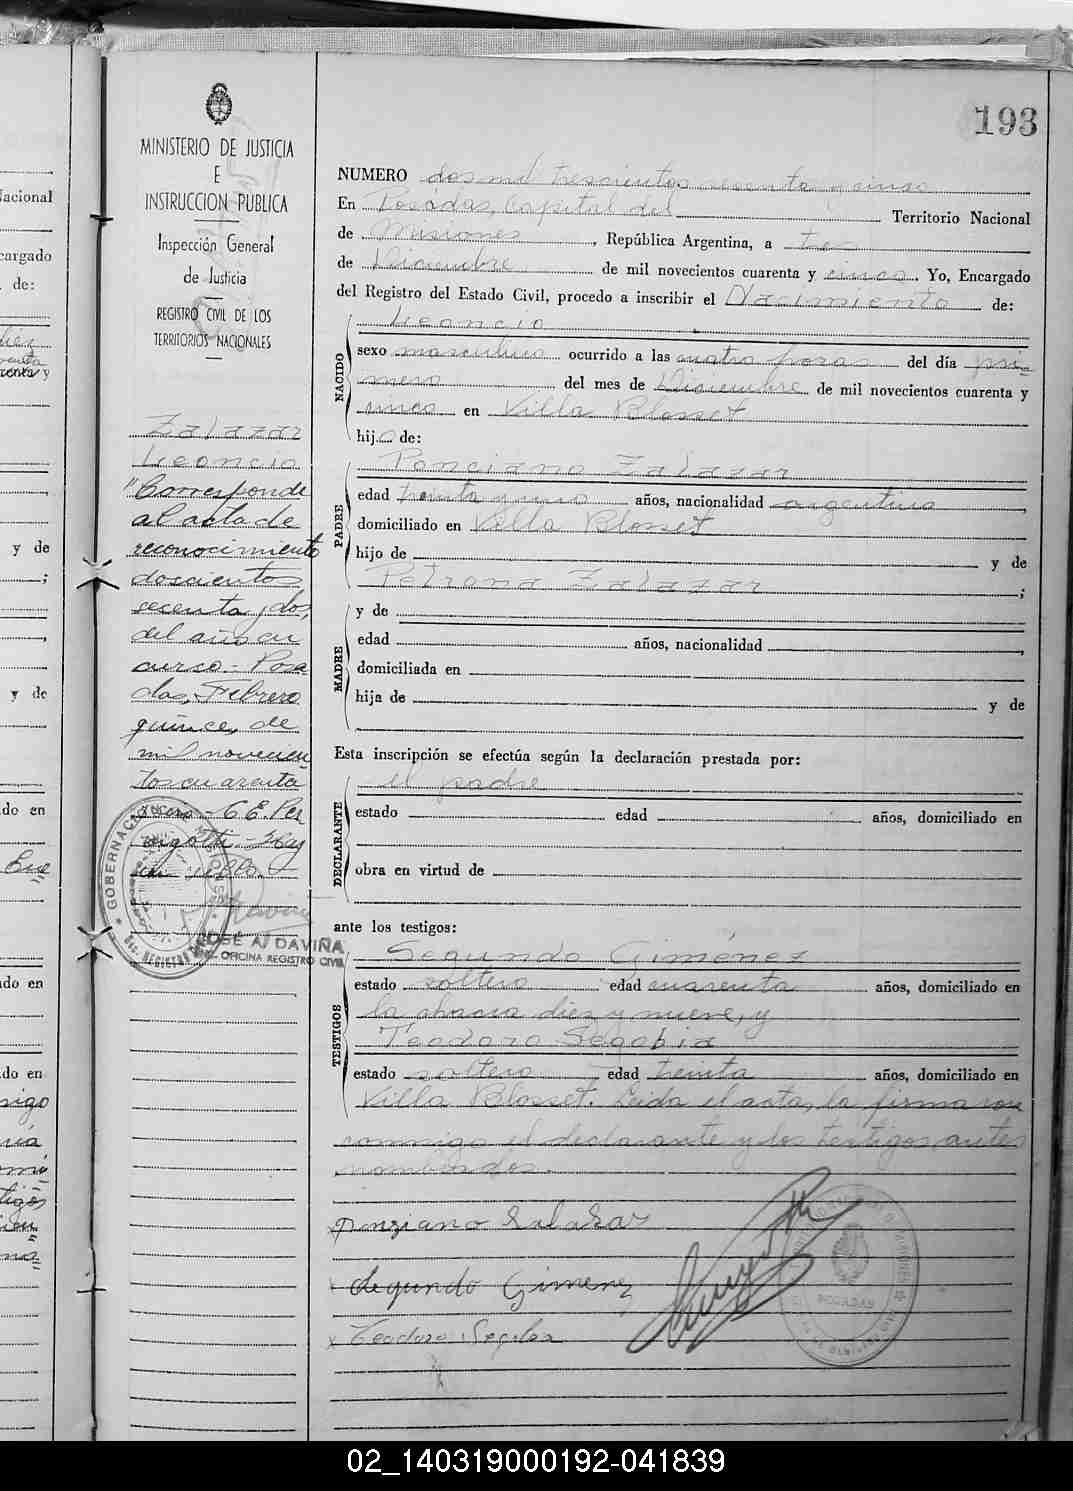 193
MINISTERIO DE JUSTICIA
E
INSTRUCCION PUBLICA
Inspección General
de Justicia
REGISTRO CIVIL DE LOS
TERRITORIOS NACIONALES
Zalazar
Leoncio
"Corresponde
al acta de
reconocimiento
doscientos
secenta y dos,
del año en
curso.- Posa
das, Febrero
quince, de
mil novecien
tos cuarenta
C. E. Per
sello.
GOBERNAC
JOSE A. DAVIÑA
OFICINA REGISTRO CIVIL
NUMERO dos mil trescientos y cinco
En Posadas, Capital del Territorio Nacional
de Misiones, República Argentina, a tres
de Diciembre de mil novecientos cuarenta y cinco. Yo, Encargado
del Registro del Estado Civil, procedo a inscribir el Nacimiento de:
NACIDO
Leoncio
sexo masculino ocurrido a las cuatro horas del día pri-
mero del mes de Diciembre de mil novecientos cuarenta y
cinco en Villa Blosset
hijo de:
PADRE
Ponciano Zalazar
edad treinta y uno años, nacionalidad argentina,
domiciliado en Villa Blosset
hijo de y de
Petrona Zalazar ;
MADRE
y de
edad años, nacionalidad ,
domiciliada en
hija de y de
Esta inscripción se efectúa según la declaración prestada por:
DECLARANTE
el padre
estado edad años, domiciliado en
obra en virtud de
ante los testigos:
TESTIGOS
Segundo Giménez
estado soltero edad cuarenta años, domiciliado en
la chacra diez y nueve, y
Teodoro Segobia
estado soltero edad treinta años, domiciliado en
Villa Blosset. Leida el acta, la firma con
conmigo el declarante y los testigos antes
nombrados.
ponziano Salasar
Segundo Gimenez
Teodoro
POSADAS
Nacional
cargado
de:
y de
;
y de
do en
do en
do en
02_140319000192-041839